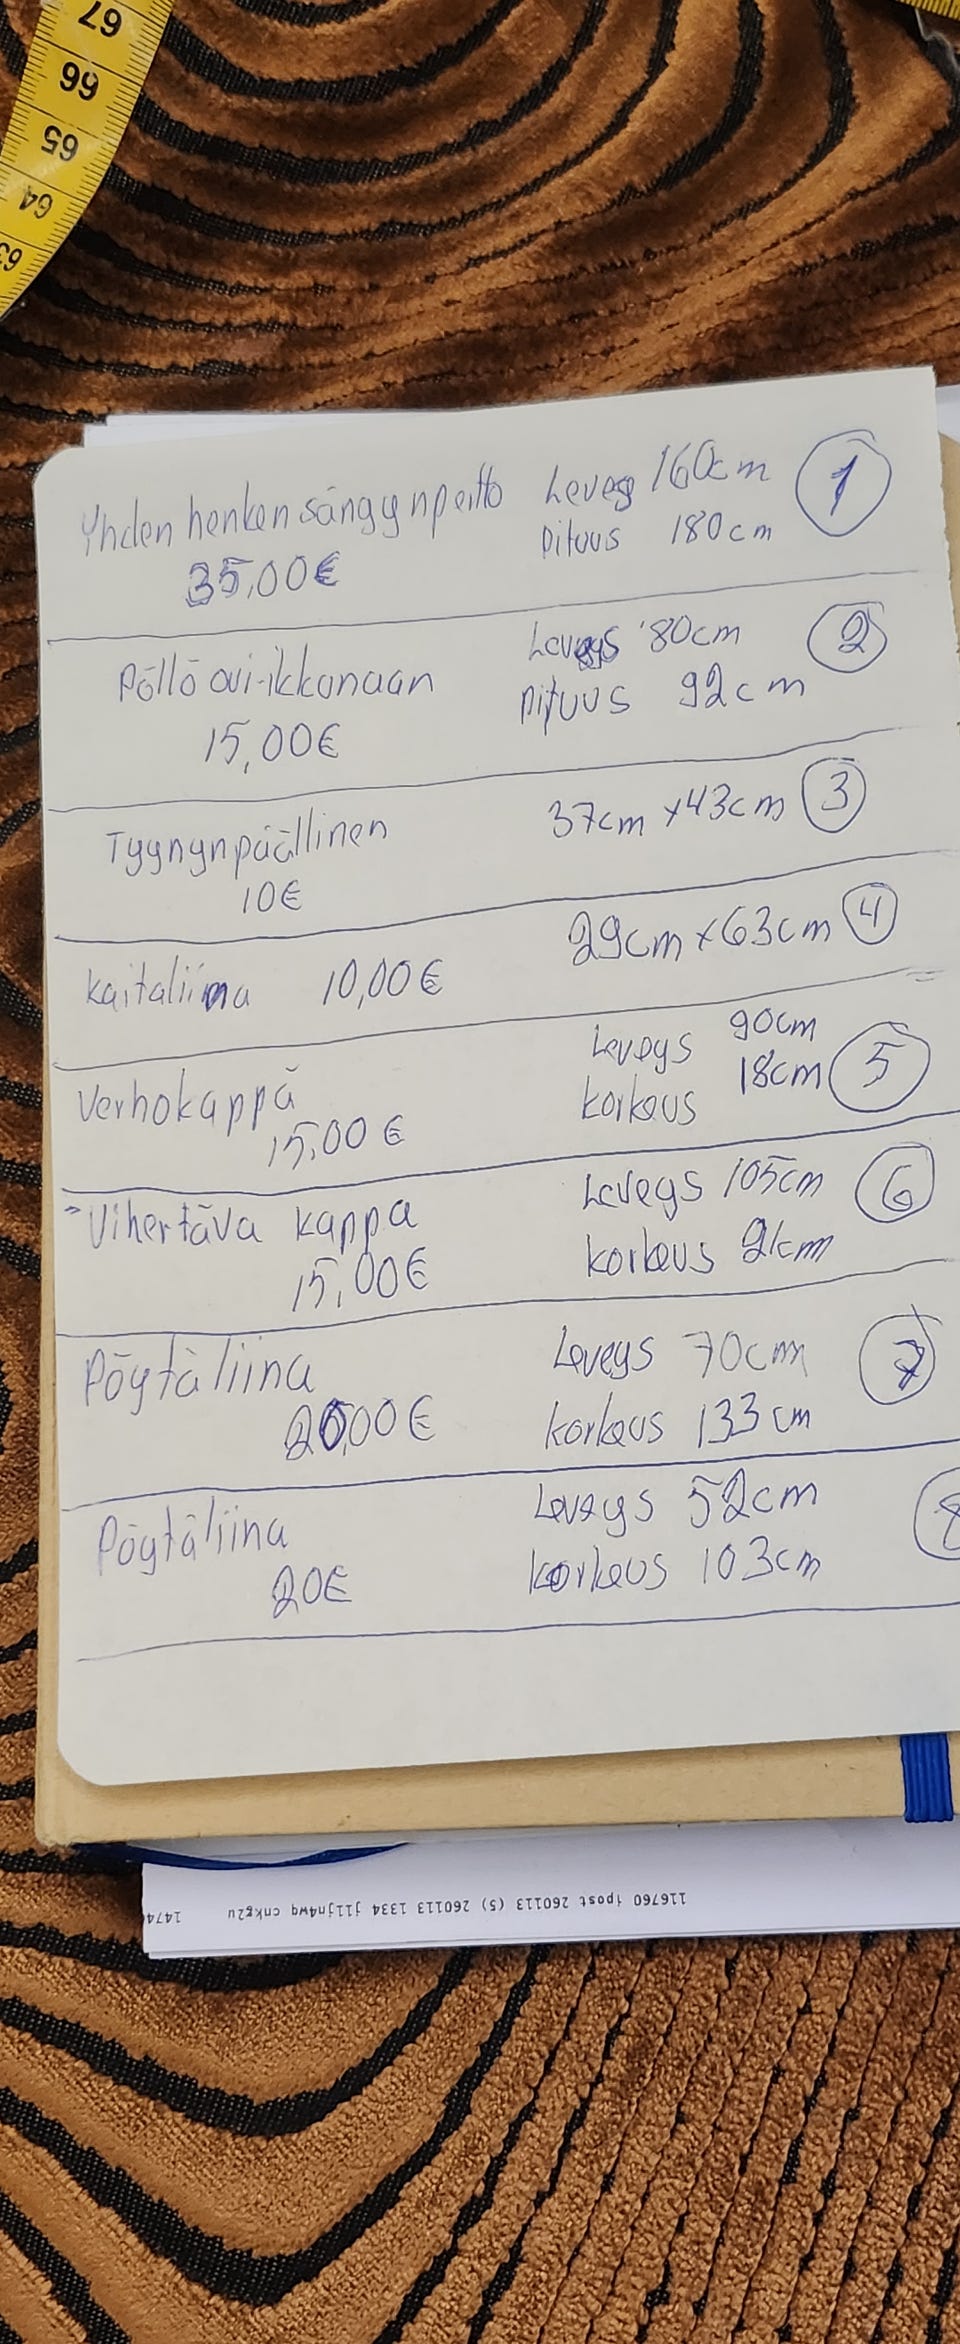 67
66
65
64
63
Yhden henken sängynpeitto Leveys 160cm 1
35,00€ pituus 180cm
Pöllö ovi-ikkunaan Leveys 80cm 2
15,00€ pituus 92cm
Tyynynpäällinen 37cm x 43cm 3
10€
Kaitaliina 10,00€ 29cm x 63cm 4
Verhokappa Leveys 90cm 5
15,00€ korkeus 18cm
Vihertävä kappa Leveys 105cm 6
15,00€ korkeus 21cm
Pöytäliina Leveys 70cm 7
20,00€ korkeus 133cm
Pöytäliina Leveys 52cm 8
20€ korkeus 103cm
116760 ipost 260113 (5) 260113 1334 jlljn4wq cnkg2u 1474